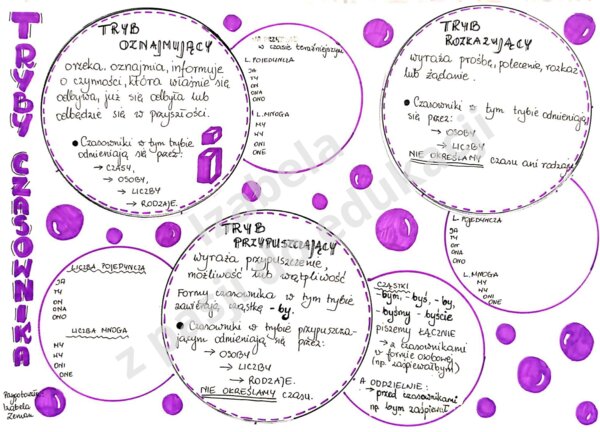 TRYBY CZASOWNIKA
TRYB
OZNAJMUJĄCY
orzeka, oznajmia, informuje
o czynności, która właśnie się
odbywa, już się odbyła lub
odbędzie się w przyszłości.
• Czasowniki w tym trybie
odmieniają się przez:
→ CZASY,
→ OSOBY,
→ LICZBY
→ RODZAJE.
w czasie teraźniejszym
L. POJEDYNCZA
JA
TY
ON
ONA
ONO
L. MNOGA
MY
WY
ONI
ONE
TRYB
ROZKAZUJĄCY
wyraża prośbę, polecenie, rozkaz
lub żądanie.
• Czasowniki w tym trybie odmieniają
się przez:
→ OSOBY
→ LICZBY
NIE OKREŚLAMY czasu ani rodzaju
L. POJEDYNCZA
JA
TY
ON
ONA
ONO
L. MNOGA
MY
WY
ONI
ONE
TRYB
PRZYPUSZCZAJĄCY
wyraża przypuszczenie,
możliwość lub wątpliwość
Formy czasownika w tym trybie
zawierają cząstkę -by.
• Czasowniki w trybie przypuszcza-
jącym odmieniają się przez:
→ OSOBY
→ LICZBY
→ RODZAJE.
NIE OKREŚLAMY czasu.
LICZBA POJEDYNCZA
JA
TY
ON
ONA
ONO
LICZBA MNOGA
MY
WY
ONI
ONE
CZĄSTKI
-bym, -byś, -by,
-byśmy -byście
piszemy ŁĄCZNIE
→ z czasownikami
w formie osobowej
(np. zaśpiewałbym)
A ODDZIELNIE:
→ przed czasownikami
np. bym zaśpiewał
Przygotowała:
Izabela
Zeman
Izabela
edukacji